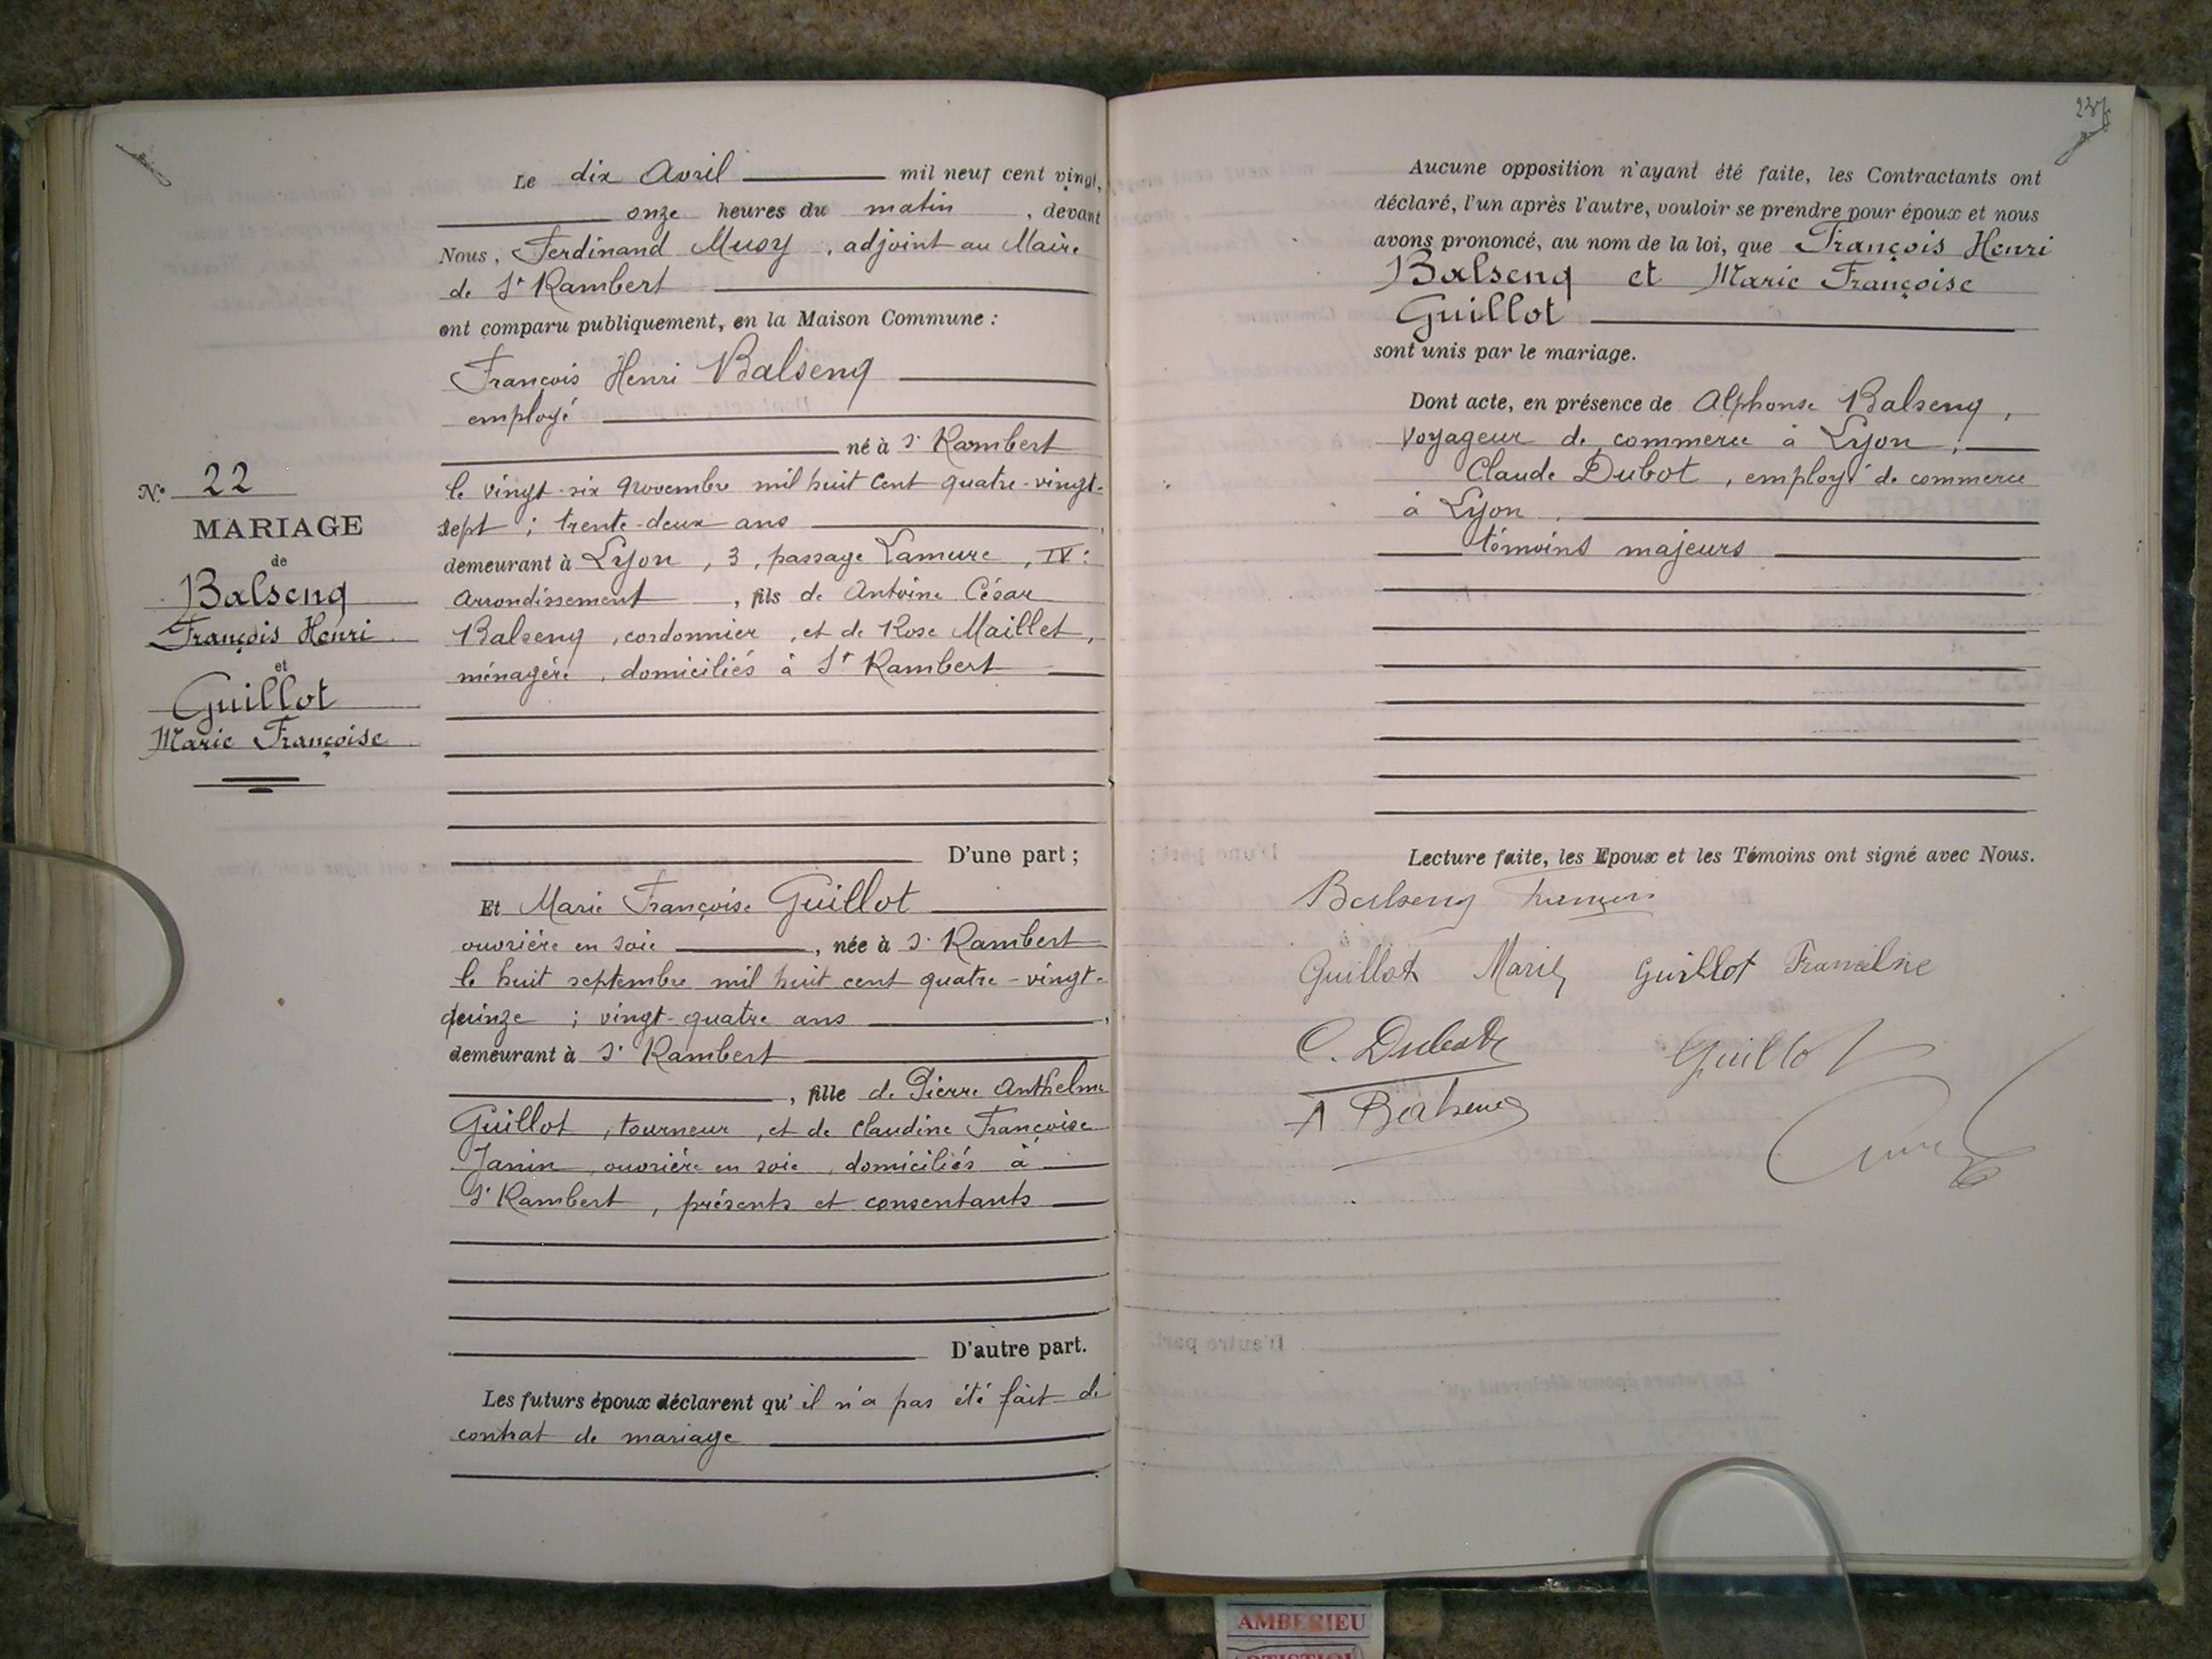 Le dix Avril mil neuf cent vingt,
onze heures du matin, devant
Nous, Ferdinand Musy, adjoint au Maire
de St Rambert
ont comparu publiquement, en la Maison Commune :
François Henri Balseng
employé
né à St Rambert
le vingt-six Novembre mil huit cent quatre-vingt-
sept ; trente-deux ans,
demeurant à Lyon, 3, passage Lamure, IVe
Arrondissement, fils de Antoine César
Balseng, cordonnier, et de Rose Maillet,
ménagère, domiciliés à St Rambert
D'une part ;
Et Marie Françoise Guillot
ouvrière en soie, née à St Rambert
le huit septembre mil huit cent quatre-vingt-
quinze ; vingt-quatre ans,
demeurant à St Rambert
, fille de Pierre Anthelme
Guillot, tourneur, et de Claudine Françoise
Janin, ouvrière en soie, domiciliés à
St Rambert, présents et consentants
D'autre part.
Les futurs époux déclarent qu'il n'a pas été fait de
contrat de mariage
No 22
MARIAGE
de
Balseng
François Henri
et
Guillot
Marie Françoise
Aucune opposition n'ayant été faite, les Contractants ont
déclaré, l'un après l'autre, vouloir se prendre pour époux et nous
avons prononcé, au nom de la loi, que François Henri
Balseng et Marie Françoise
Guillot
sont unis par le mariage.
Dont acte, en présence de Alphonse Balseng,
voyageur de commerce à Lyon ;
Claude Dubot, employé de commerce
à Lyon.
témoins majeurs
Lecture faite, les Epoux et les Témoins ont signé avec Nous.
Balseng François
Guillot Marie Guillot Franceline
C. Dubot Guillot
A Balseng
AMBERIEU